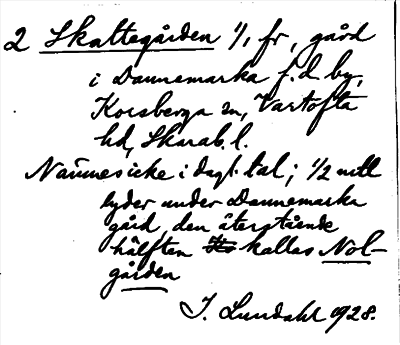 2 Skattegården 1/1 fr, gård
i Dannemarka f.d. by,
Korsberga sn, Vartofta
hd, Skarab. l.
Namnes icke i dagl. tal; 1/2 mtl
lyder under Dannemarka
gård, den återstående
hälften kallas Nol-
gården
J. Lundahl 1928.